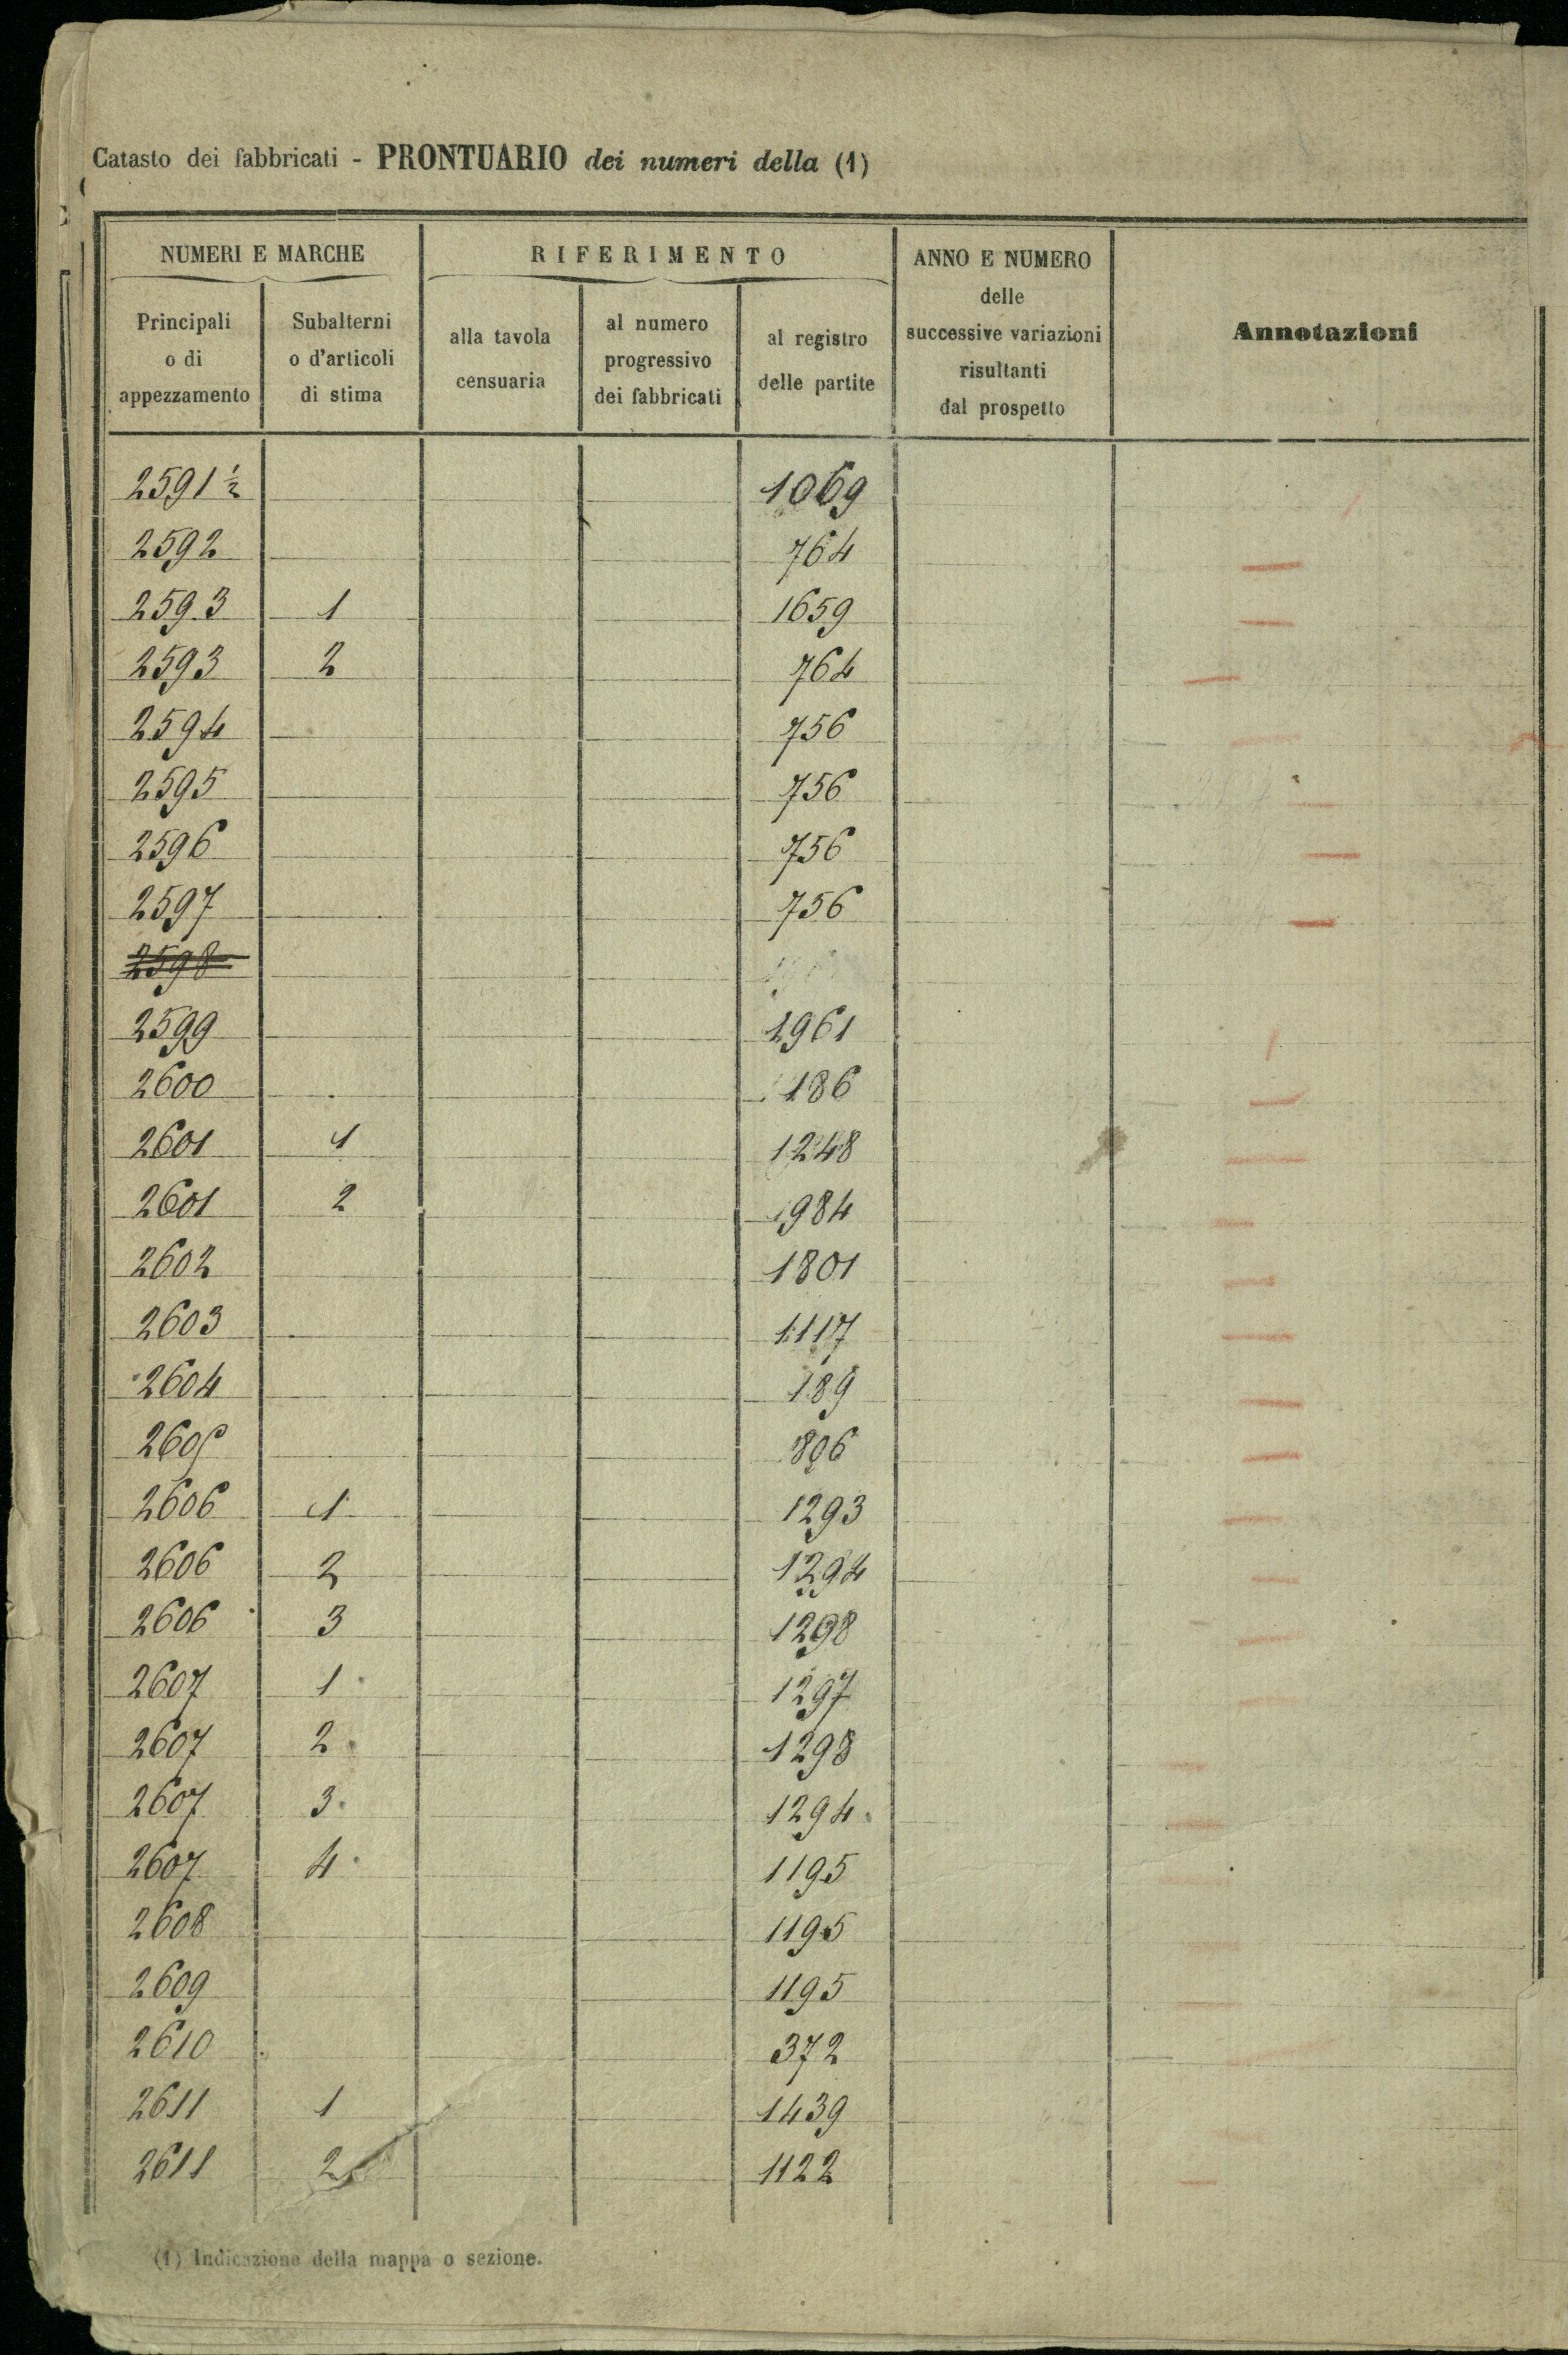 Catasto dei fabbricati - PRONTUARIO dei numeri della (1)
NUMERI E MARCHE
RIFERIMENTO
ANNO E NUMERO
delle
successive variazioni
risultanti
dal prospetto
Annotazioni
Principali
o di
appezzamento
Subalterni
o d'articoli
di stima
alla tavola
censuaria
al numero
progressivo
dei fabbricati
al registro
delle partite
2591 ½ 1069
2592 764
2593 1 1659
2593 2 764
2594 756
2595 756
2596 756
2597 756
2598
2599 1961
2600 186
2601 1 1248
2601 2 984
2602 1801
2603 1117
2604 189
2605 806
2606 1 1293
2606 2 1294
2606 3 1298
2607 1 1297
2607 2 1298
2607 3 1294
2607 4 1195
2608 1195
2609 1195
2610 372
2611 1 1439
2611 2 1122
(1) Indicazione della mappa o sezione.